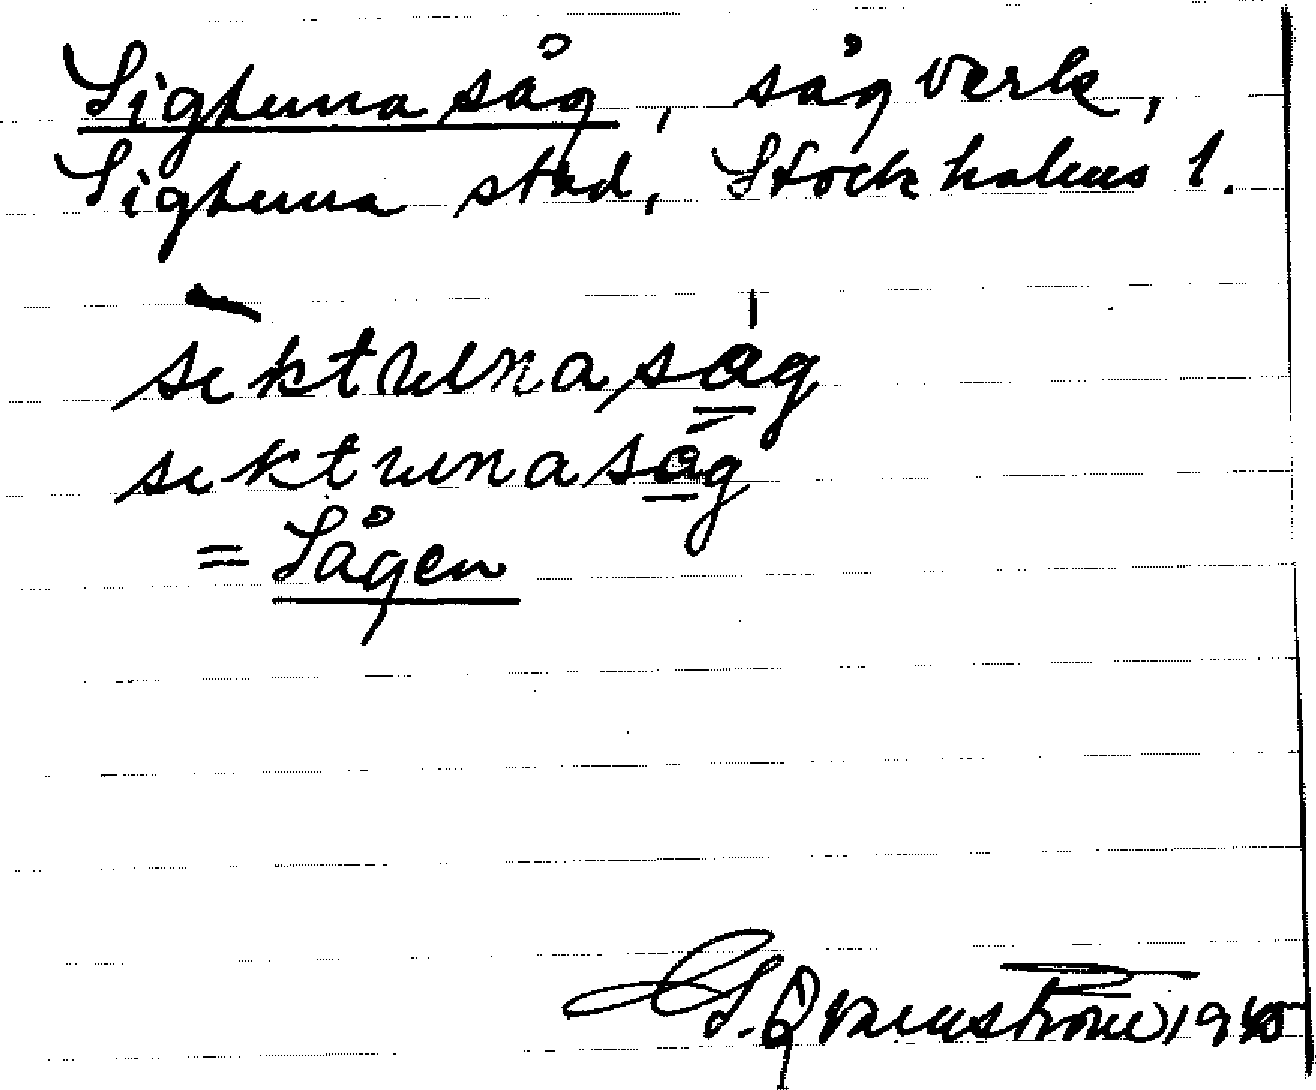 Sigtuna såg, sågverk,
Sigtuna stad, Stockholms l.
sìktunaság
sìktunaság
= Sågen
S. Qvarnström 1940